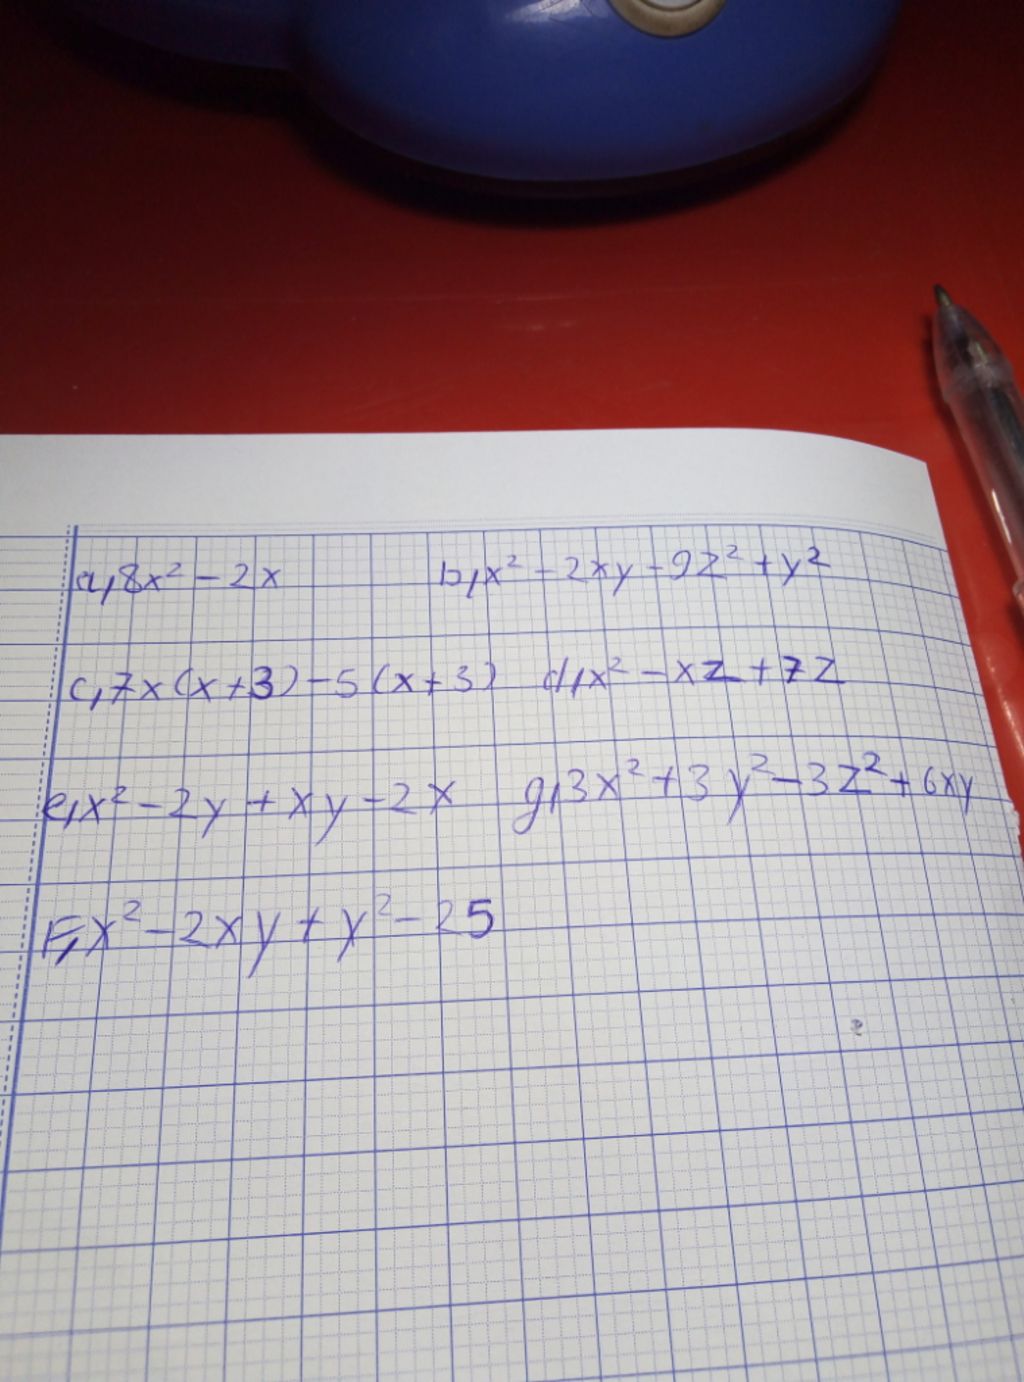 a, 8x² - 2x b, x² - 2xy - 9z² + y²
c, 7x(x+3) - 5(x+3) d, x² - xz + 7z
e, x² - 2y + xy - 2x g, 3x² + 3y² - 3z² + 6xy
F, x² - 2xy + y² - 25